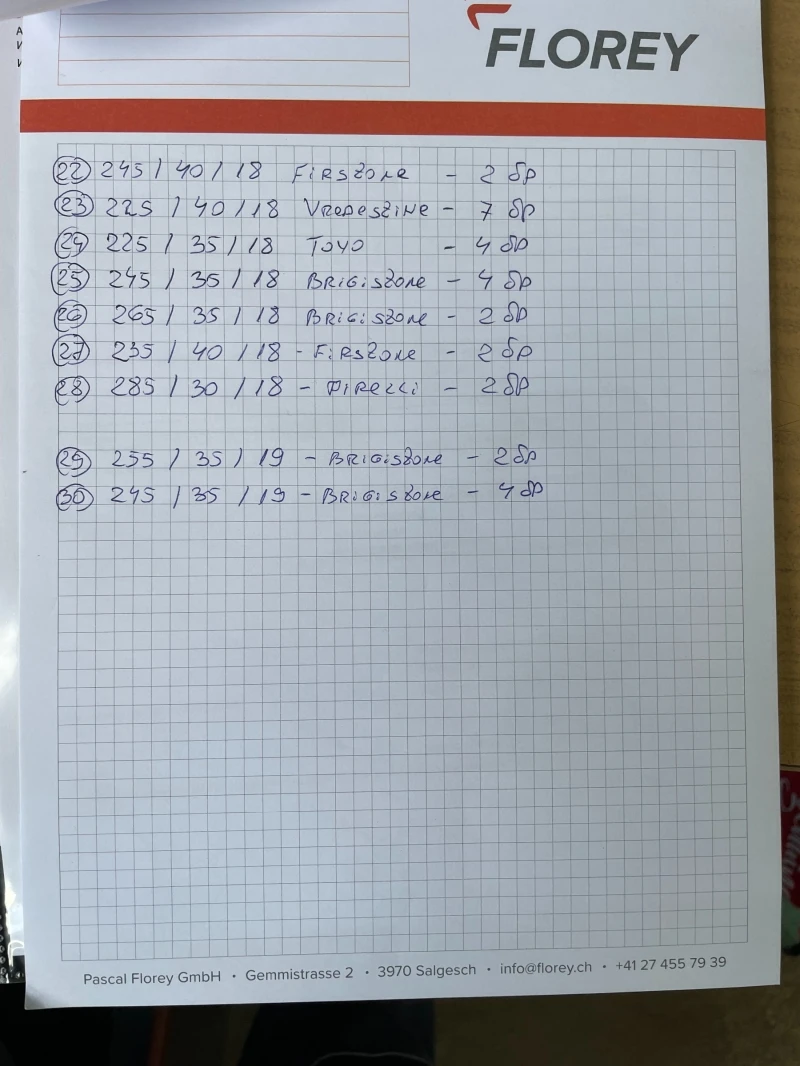 FLOREY
22 245 / 40 / 18 FirsTone - 2 бр
23 225 / 40 / 18 VREDESTINE - 7 бр
24 225 / 35 / 18 TOYO - 4 бр
25 245 / 35 / 18 BRIGISTONE - 4 бр
26 265 / 35 / 18 BRIGISTONE - 2 бр
27 235 / 40 / 18 - FIRSTONE - 2 бр
28 285 / 30 / 18 - PIRELLI - 2 бр
29 255 / 35 / 19 - BRIGISTONE - 2 бр
30 245 / 35 / 19 - BRIGISTONE - 4 бр
Pascal Florey GmbH • Gemmistrasse 2 • 3970 Salgesch • info@florey.ch • +41 27 455 79 39